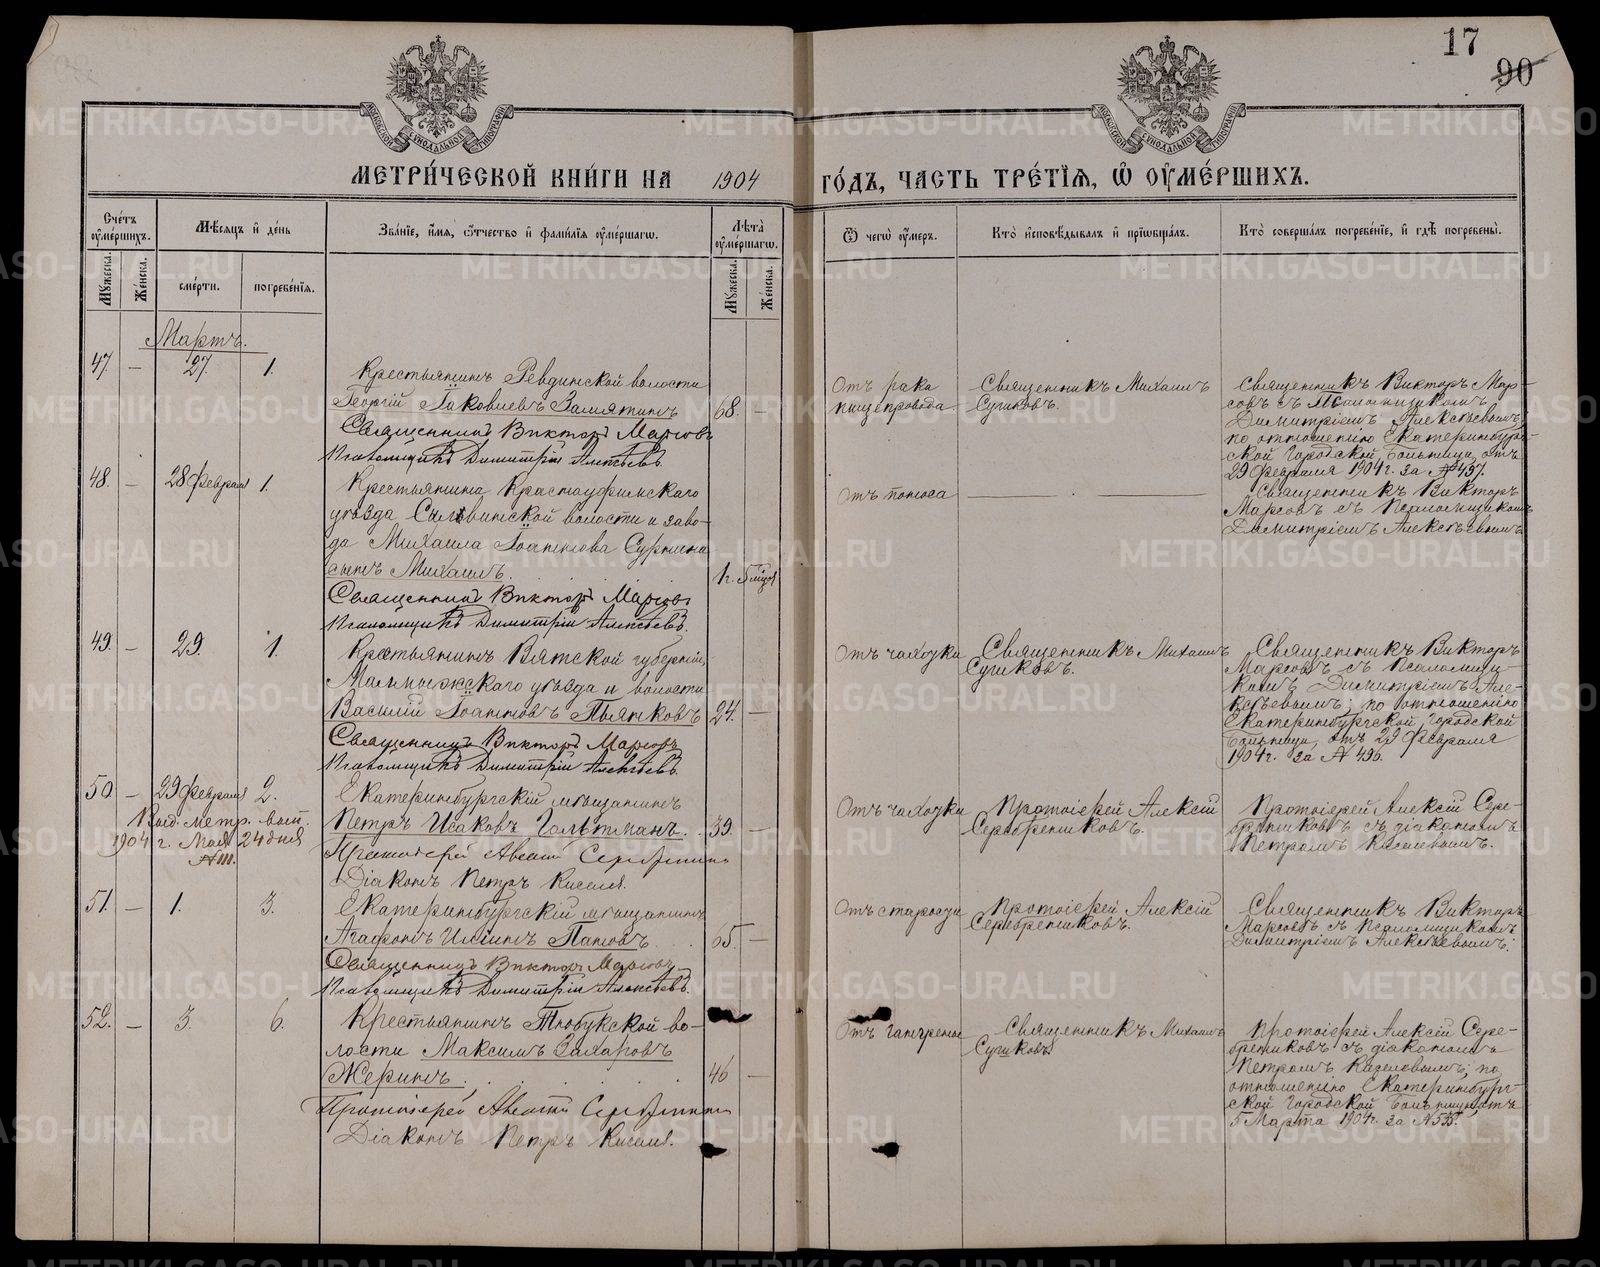 17
90
МЕТРИ́ЧЕСКОЙ КНИ́ГИ НА 1904 ГО́ДЪ, ЧАСТЬ ТРЕ́ТІѦ, Ѡ ОУМЕ́РШИХЪ.
Счетъ оумершихъ.
Мѣсяцъ и день
Званіе, имя, отчество и фамилія оумершагѡ.
Лѣта оумершагѡ.
Ѿ чегѡ оумеръ.
Кто исповѣдывалъ и пріѡбщалъ.
Кто совершалъ погребеніе, и гдѣ погребены.
Мужеска.
Женска.
смерти.
погребенія.
Мужеска.
Женска.
Мартъ.
47. — 27. 1.
Крестьянинъ Ревдинской волости
Георгій Іаковлевъ Замятинъ 68. —
Священникъ Викторъ
Псаломщикъ Димитрій Алексѣевъ.
Отъ рака
пищепровода.
Священникъ Михаилъ
Сушковъ.
Священникъ Викторъ
съ Псаломщикомъ
Димитріемъ Алексѣевымъ;
по отношенію Екатеринбург-
ской Городской Больницы, отъ
29 Февраля 1904 г. за № 497.
48. — 28 Февраля 1.
Крестьянина Красноуфимскаго
уѣзда Сылвинской волости и заво-
да Михаила Іоаннова
сынъ Михаилъ. 1 г. 5 мѣся
Священникъ Викторъ
Псаломщикъ Димитрій Алексѣевъ.
Отъ поноса
Священникъ Викторъ
съ Псаломщикомъ
Димитріемъ Алексѣевымъ.
49. — 29. 1.
Крестьянинъ Вятской губерніи,
Малмыжскаго уѣзда и волости
Василій Іоанновъ Пьянковъ 24. —
Священникъ Викторъ
Псаломщикъ Димитрій Алексѣевъ.
Отъ чахотки
Священникъ Михаилъ
Сушковъ.
Священникъ Викторъ
съ Псаломщи-
комъ Димитріемъ Але-
ксѣевымъ; по отношенію
Екатеринбургской Городской
Больницы, отъ 29 Февраля
1904 г. за № 496.
50 — 29 Февраля 2.
Выд. метр. вып.
1904 г. Мая 24 дня
Екатеринбургскій мѣщанинъ
Петръ Исаковъ Гольтманъ. 39. —
Протоіерей Алексій Серебренниковъ
Діаконъ Петръ Киселевъ.
Отъ чахотки
Протоіерей Алексій
Серебрениковъ.
Протоіерей Алексій Сере-
брениковъ съ діакономъ
Петромъ Киселевымъ.
51. — 1. 3.
Екатеринбургскій мѣщанинъ
Агафонъ Пановъ 65. —
Священникъ Викторъ
Псаломщикъ Димитрій Алексѣевъ.
Отъ старости
Протоіерей Алексій
Серебрениковъ.
Священникъ Викторъ
съ Псаломщикомъ
Димитріемъ Алексѣевымъ.
52. — 3. 6.
Крестьянинъ Тюбукской во-
лости Максимъ Захаровъ
Жеринъ. 46 —
Протоіерей Алексій Серебренниковъ
Діаконъ Петръ Киселевъ.
Отъ гангрены
Священникъ Михаилъ
Сушковъ.
Протоіерей Алексій Сере-
брениковъ съ діакономъ
Петромъ Киселевымъ; по
отношенію Екатеринбург-
ской Городской Больницы отъ
5 Марта 1904 г. за №
METRIKI.GASO-URAL.RU